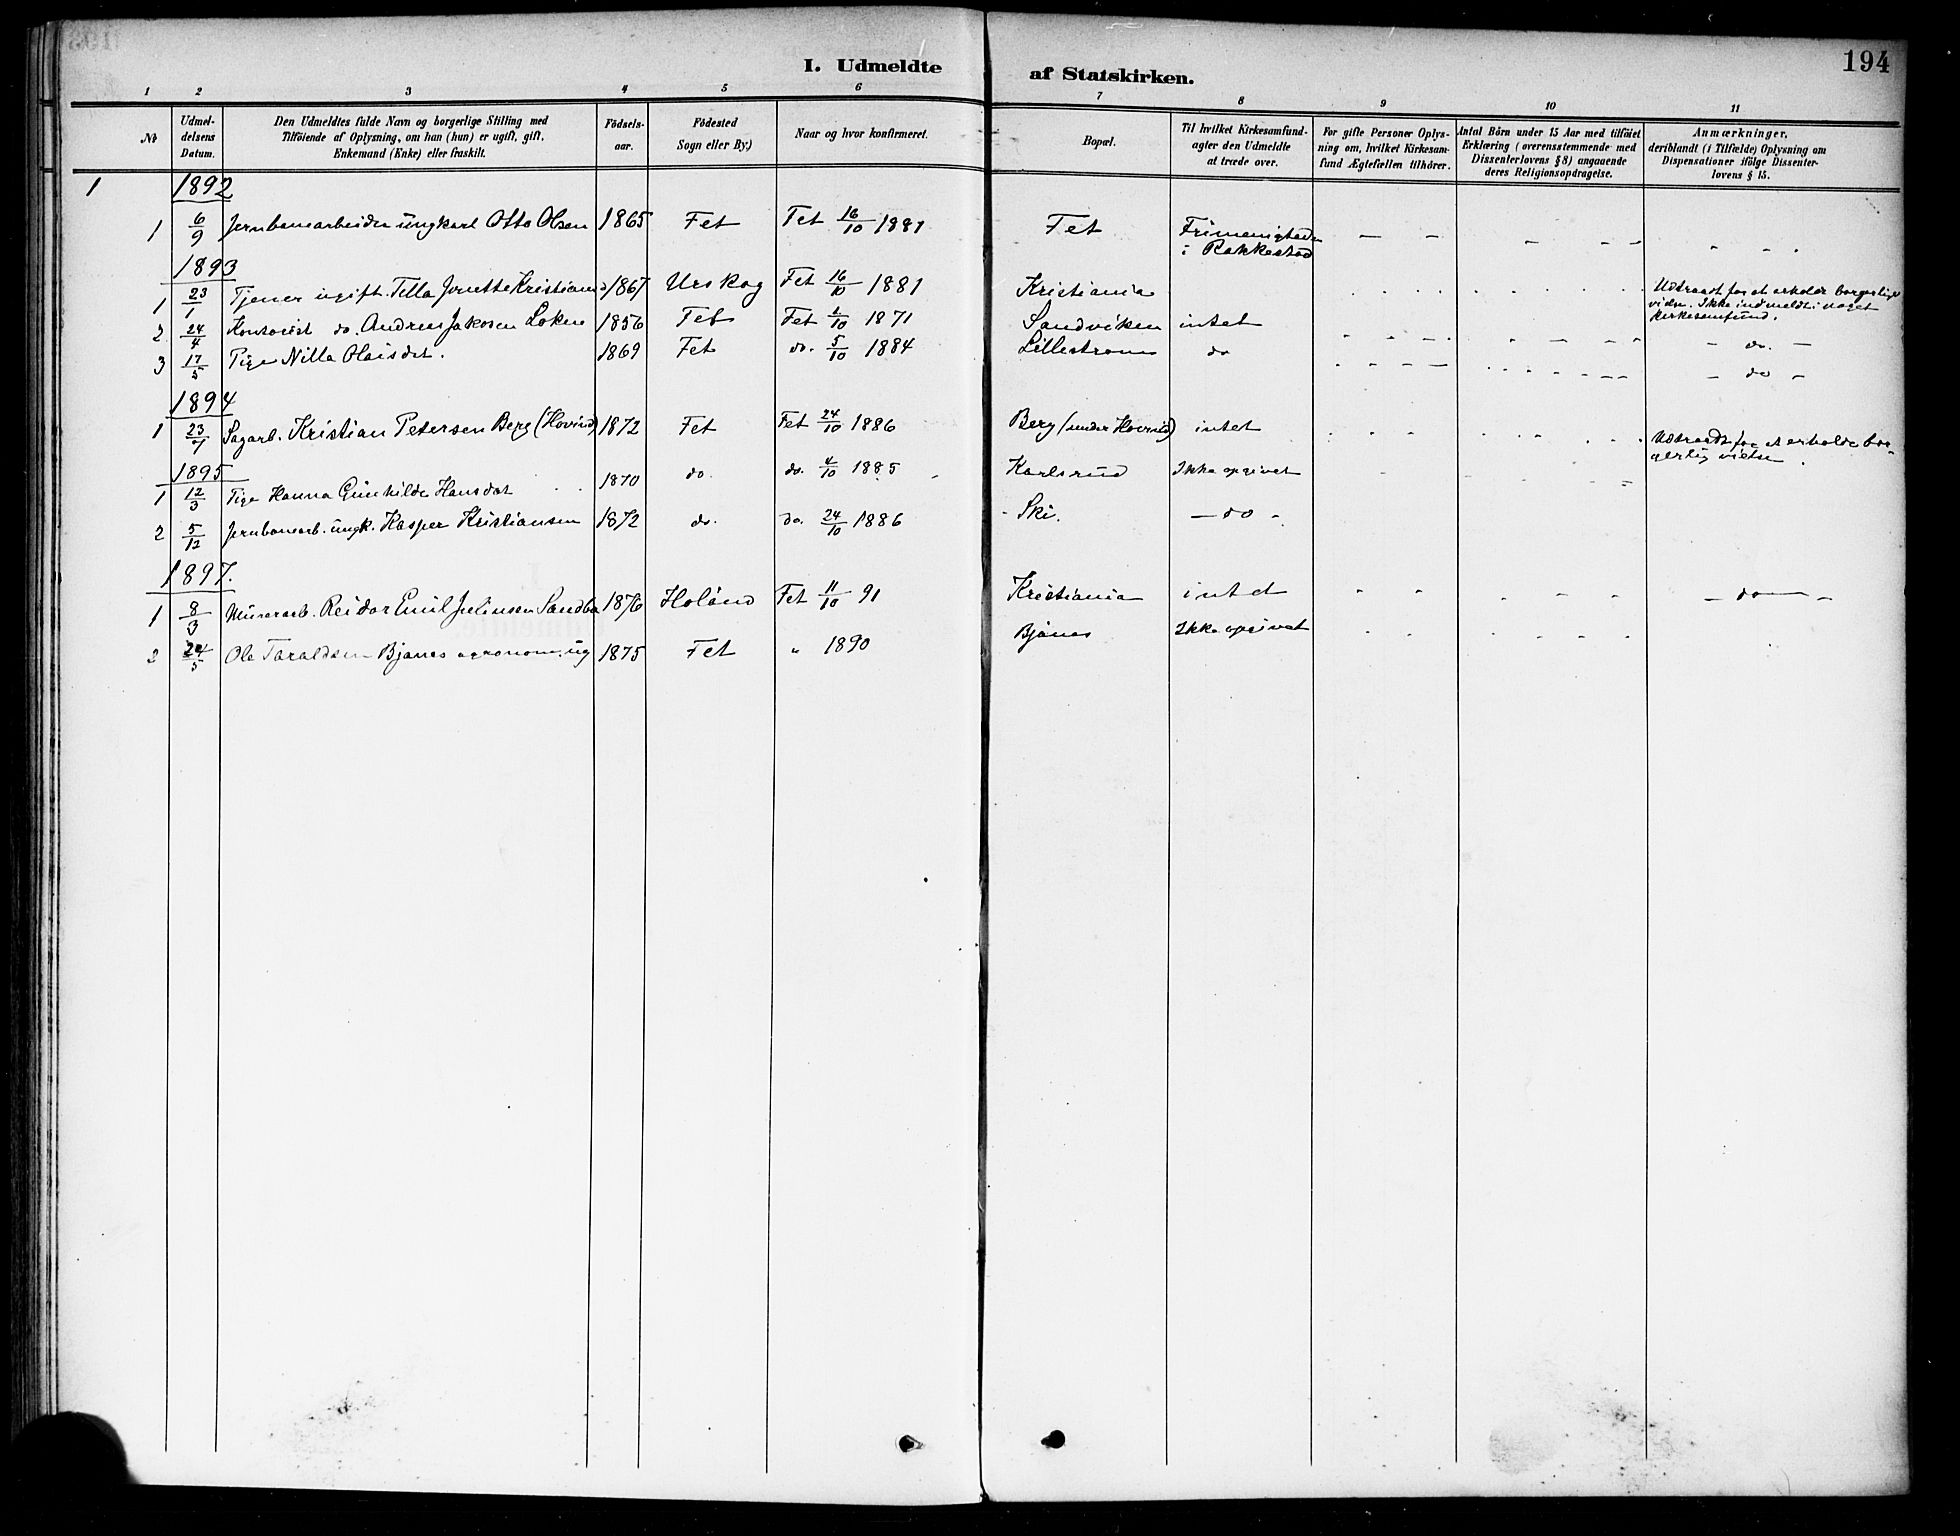 194
I. Udmeldte af Statskirken.
1 2 3 4 5 6 7 8 9 10 11
No
Udmel-
delsens
Datum.
Den Udmeldtes fulde Navn og borgerlige Stilling med
Tilföiende af Oplysning, om han (hun) er ugift, gift,
Enkemand (Enke) eller fraskilt.
Födsels-
aar.
Födested
Sogn eller By.)
Naar og hvor konfirmeret.
Bopæl.
Til hvilket Kirkesamfund-
agter den Udmeldte
at træde over.
For gifte Personer Oplys-
ning om, hvilket Kirkesam-
fund Ægtefællen tilhörer.
Antal Börn under 15 Aar med tilföiet
Erklæring (overensstemmende med
Dissenterlovens § 8) angaaende
deres Religionsopdragelse.
Anmærkninger,
deriblandt (i Tilfælde) Oplysning om
Dispensationer ifölge Dissenter-
lovens § 15.
1 1892
1 6/9 Jernbanearbeider ungkarl Otto Olsen 1865 Fet Fet 16/10 1881 Fet Frimenigheden
i Rakkestad
1893
1 23/1 Tjener ugift Tilla Jonette Kristians 1867 Urskog Fet 16/10 1881 Kristiania Udtraadt for at erholde borgerlig
vidse. Ikke indmeldt i noget
kirkesamfund.
2 24/4 Kontorist do. Andreas Jakobsen Løken 1856 Fet Fet 1/10 1871 Sandviken intet - do. -
3 17/5 Pige Nilla Olaisdat. 1869 Fet do. 5/10 1884 Lillestrøm do - do -
1894
1 23/7 Sagarb. Kristian Petersen Berg (Hovind) 1872 Fet Fet 24/10 1886 Berg (under Hovind) intet Udtraadt for at erholde bor-
gerlig vielse.
1895
1 12/3 Pige Hanna Gunhilde Hansdat 1870 do. do. 4/10 1885 Karlsrud Ikke opgivet
2 5/12 Jernbanearb. ungk. Kasper Kristiansen 1872 do. do. 24/10 1886 Ski. - do -
1897.
1 8/3 Murerarb. Reidar Emil Julinsen Sandbo 1876 Høland Fet 11/10 91 Kristiania intet - do -
2 24/5 Ole Taraldsen Bjanes agronom, ug 1875 Fet " 1890 Bjånes Ikke opgivet